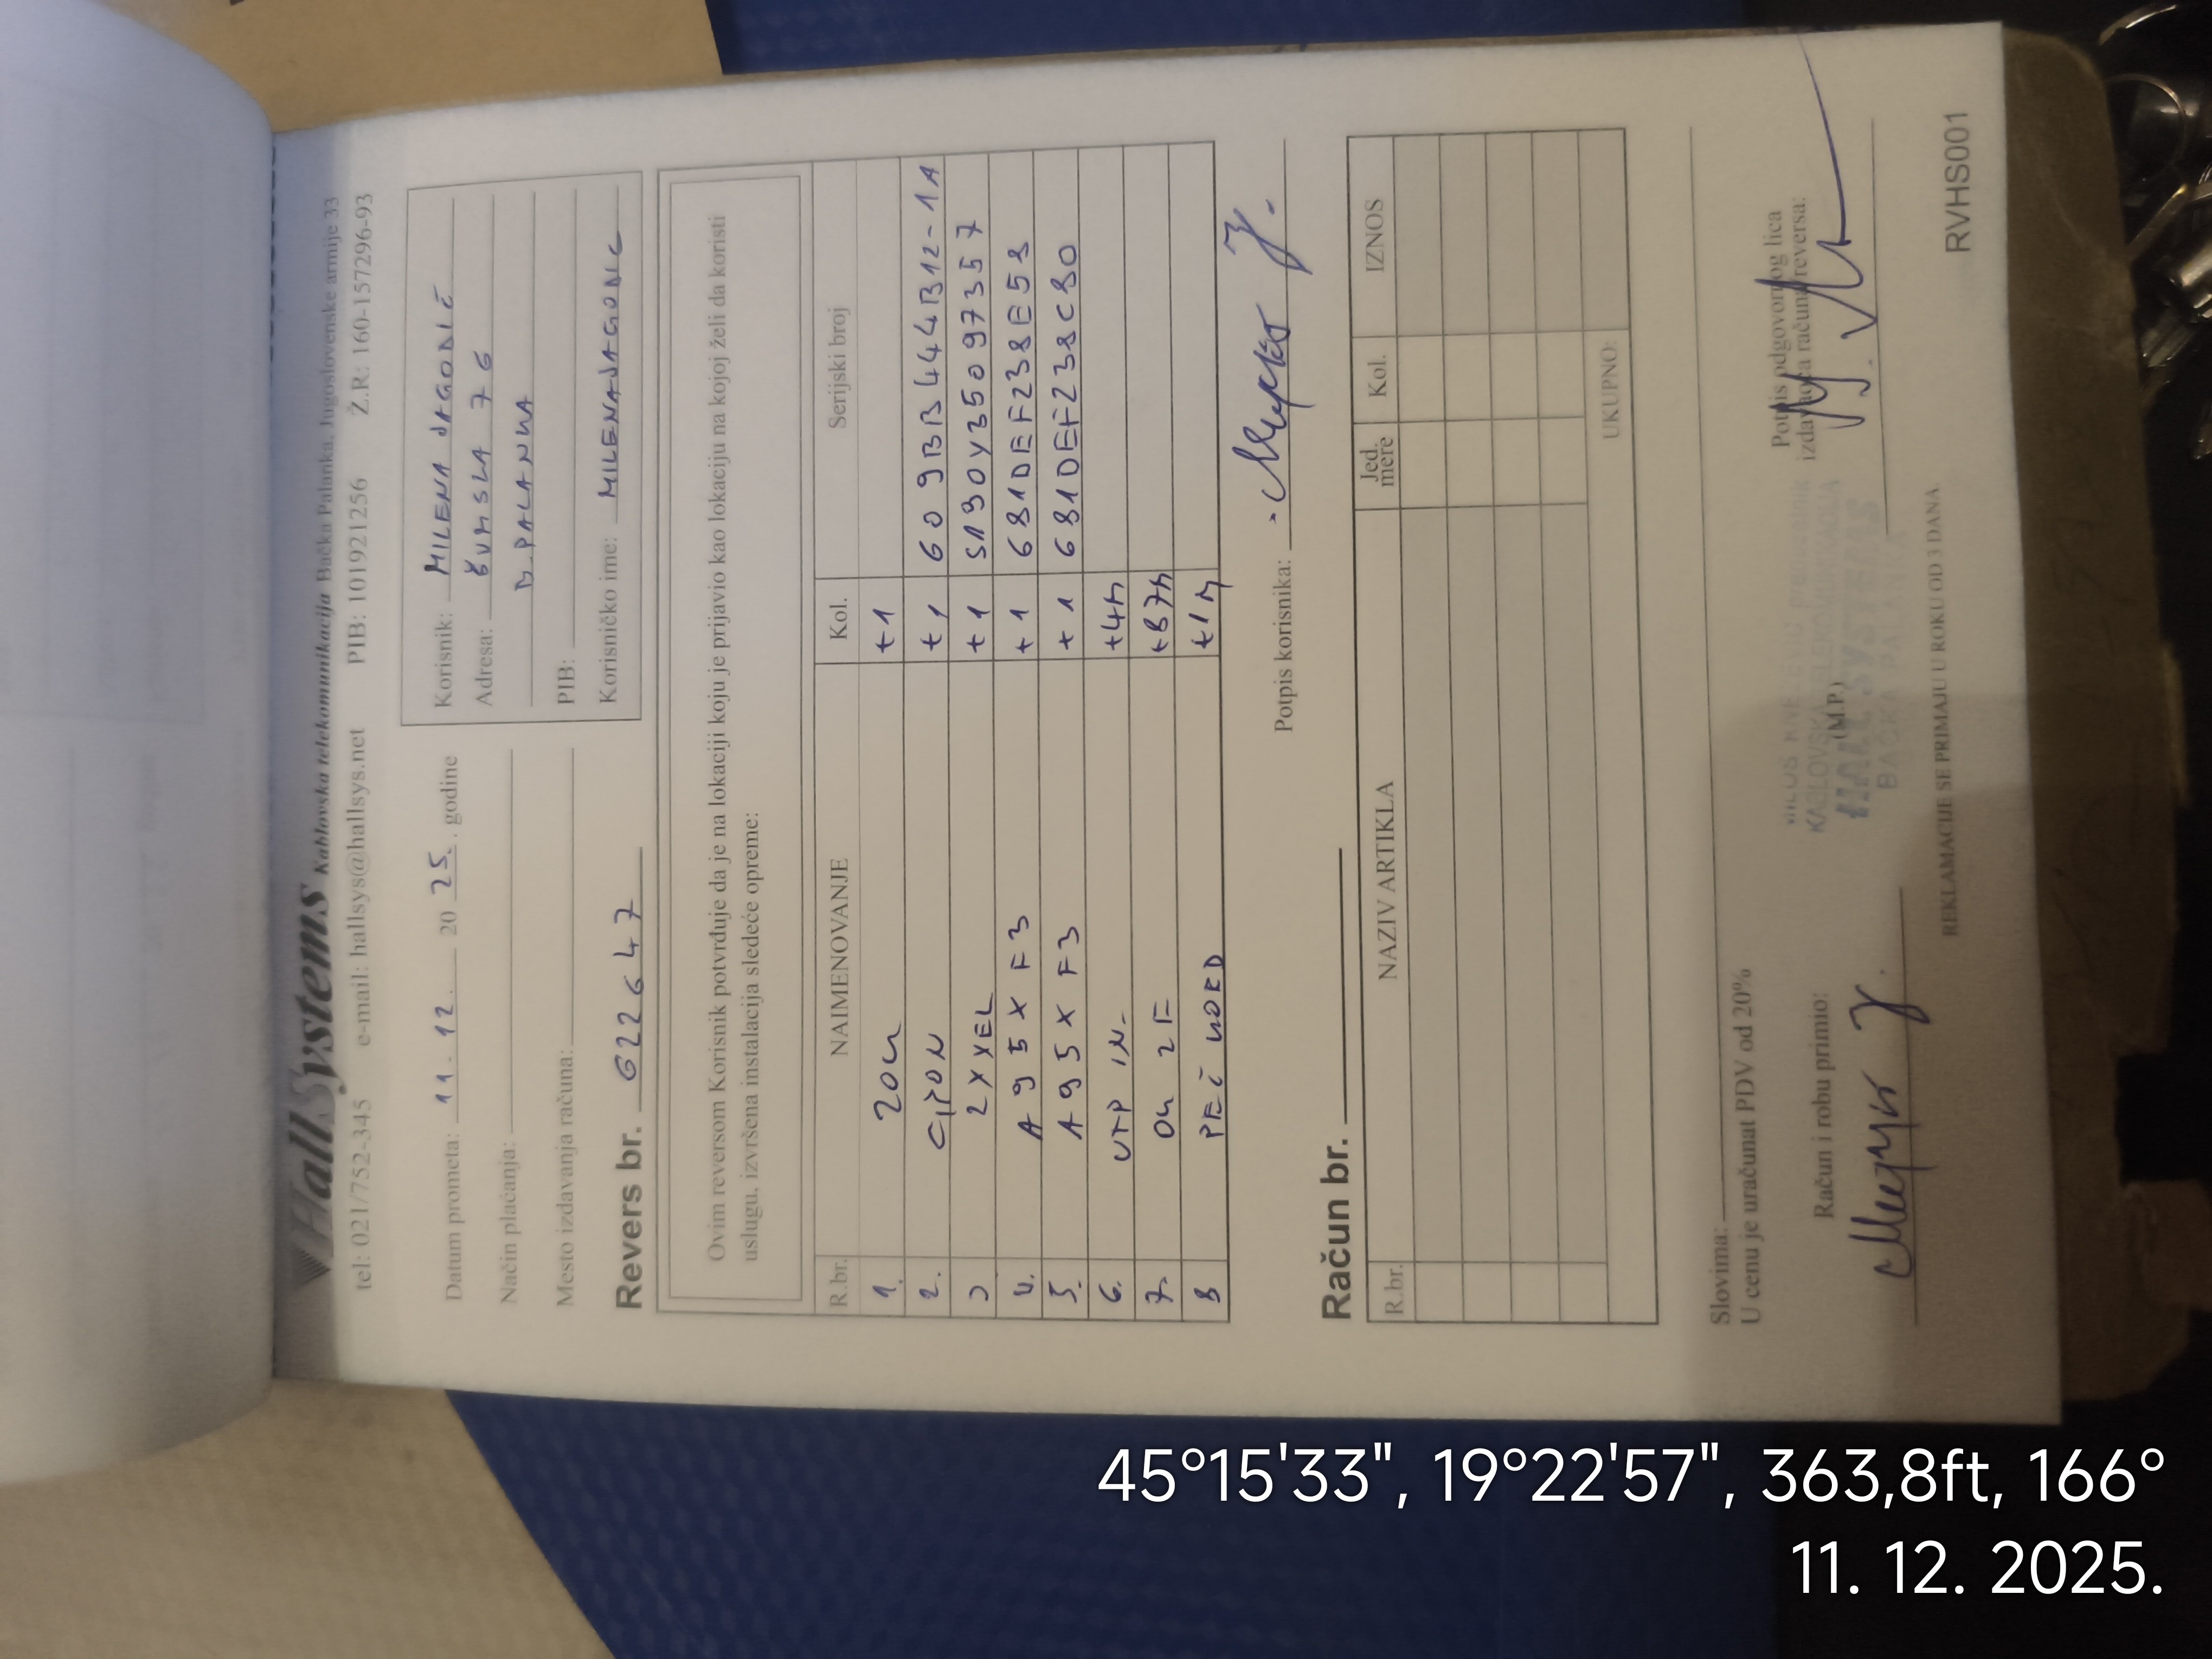 HallSystems Kablovska telekomunikacija Bačka Palanka, Jugoslovenske armije 33
tel: 021/752-345 e-mail: hallsys@hallsys.net PIB: 101921256 Ž.R: 160-1577296-93
Datum prometa: 11-12. 2025. godine
Način plaćanja:
Mesto izdavanja računa:
Korisnik: MILENA JAGODIĆ
Adresa: ŠUMSKA 76
B.PALANKA
PIB:
Korisničko ime: MILENAJAGODIC
Revers br. 622647
Ovim reversom Korisnik potvrđuje da je na lokaciji koju je prijavio kao lokaciju na kojoj želi da koristi
uslugu, izvršena instalacija sledeće opreme:
R.br. NAIMENOVANJE Kol. Serijski broj
1. ZOK +1
2. GPON +1 609BB444B12-1A
3 ZYXEL +1 S190Y35097357
4. A95XF3 +1 681DEF238E58
5. A95XF3 +1 681DEF238C80
6. UTP IN- +4m
7. OK 2F +87m
8 +1m
Potpis korisnika:
Račun br.
R.br. NAZIV ARTIKLA Jed. mere Kol. IZNOS
UKUPNO:
Slovima:
U cenu je uračunat PDV od 20%
Račun i robu primio:
(M.P.)
Potpis odgovornog lica
izdavaoca računa/reversa:
HALL SYSTEMS
BAČKA PALANKA
REKLAMACIJE SE PRIMAJU U ROKU OD 3 DANA.
RVHS001
45°15'33", 19°22'57", 363,8ft, 166°
11. 12. 2025.